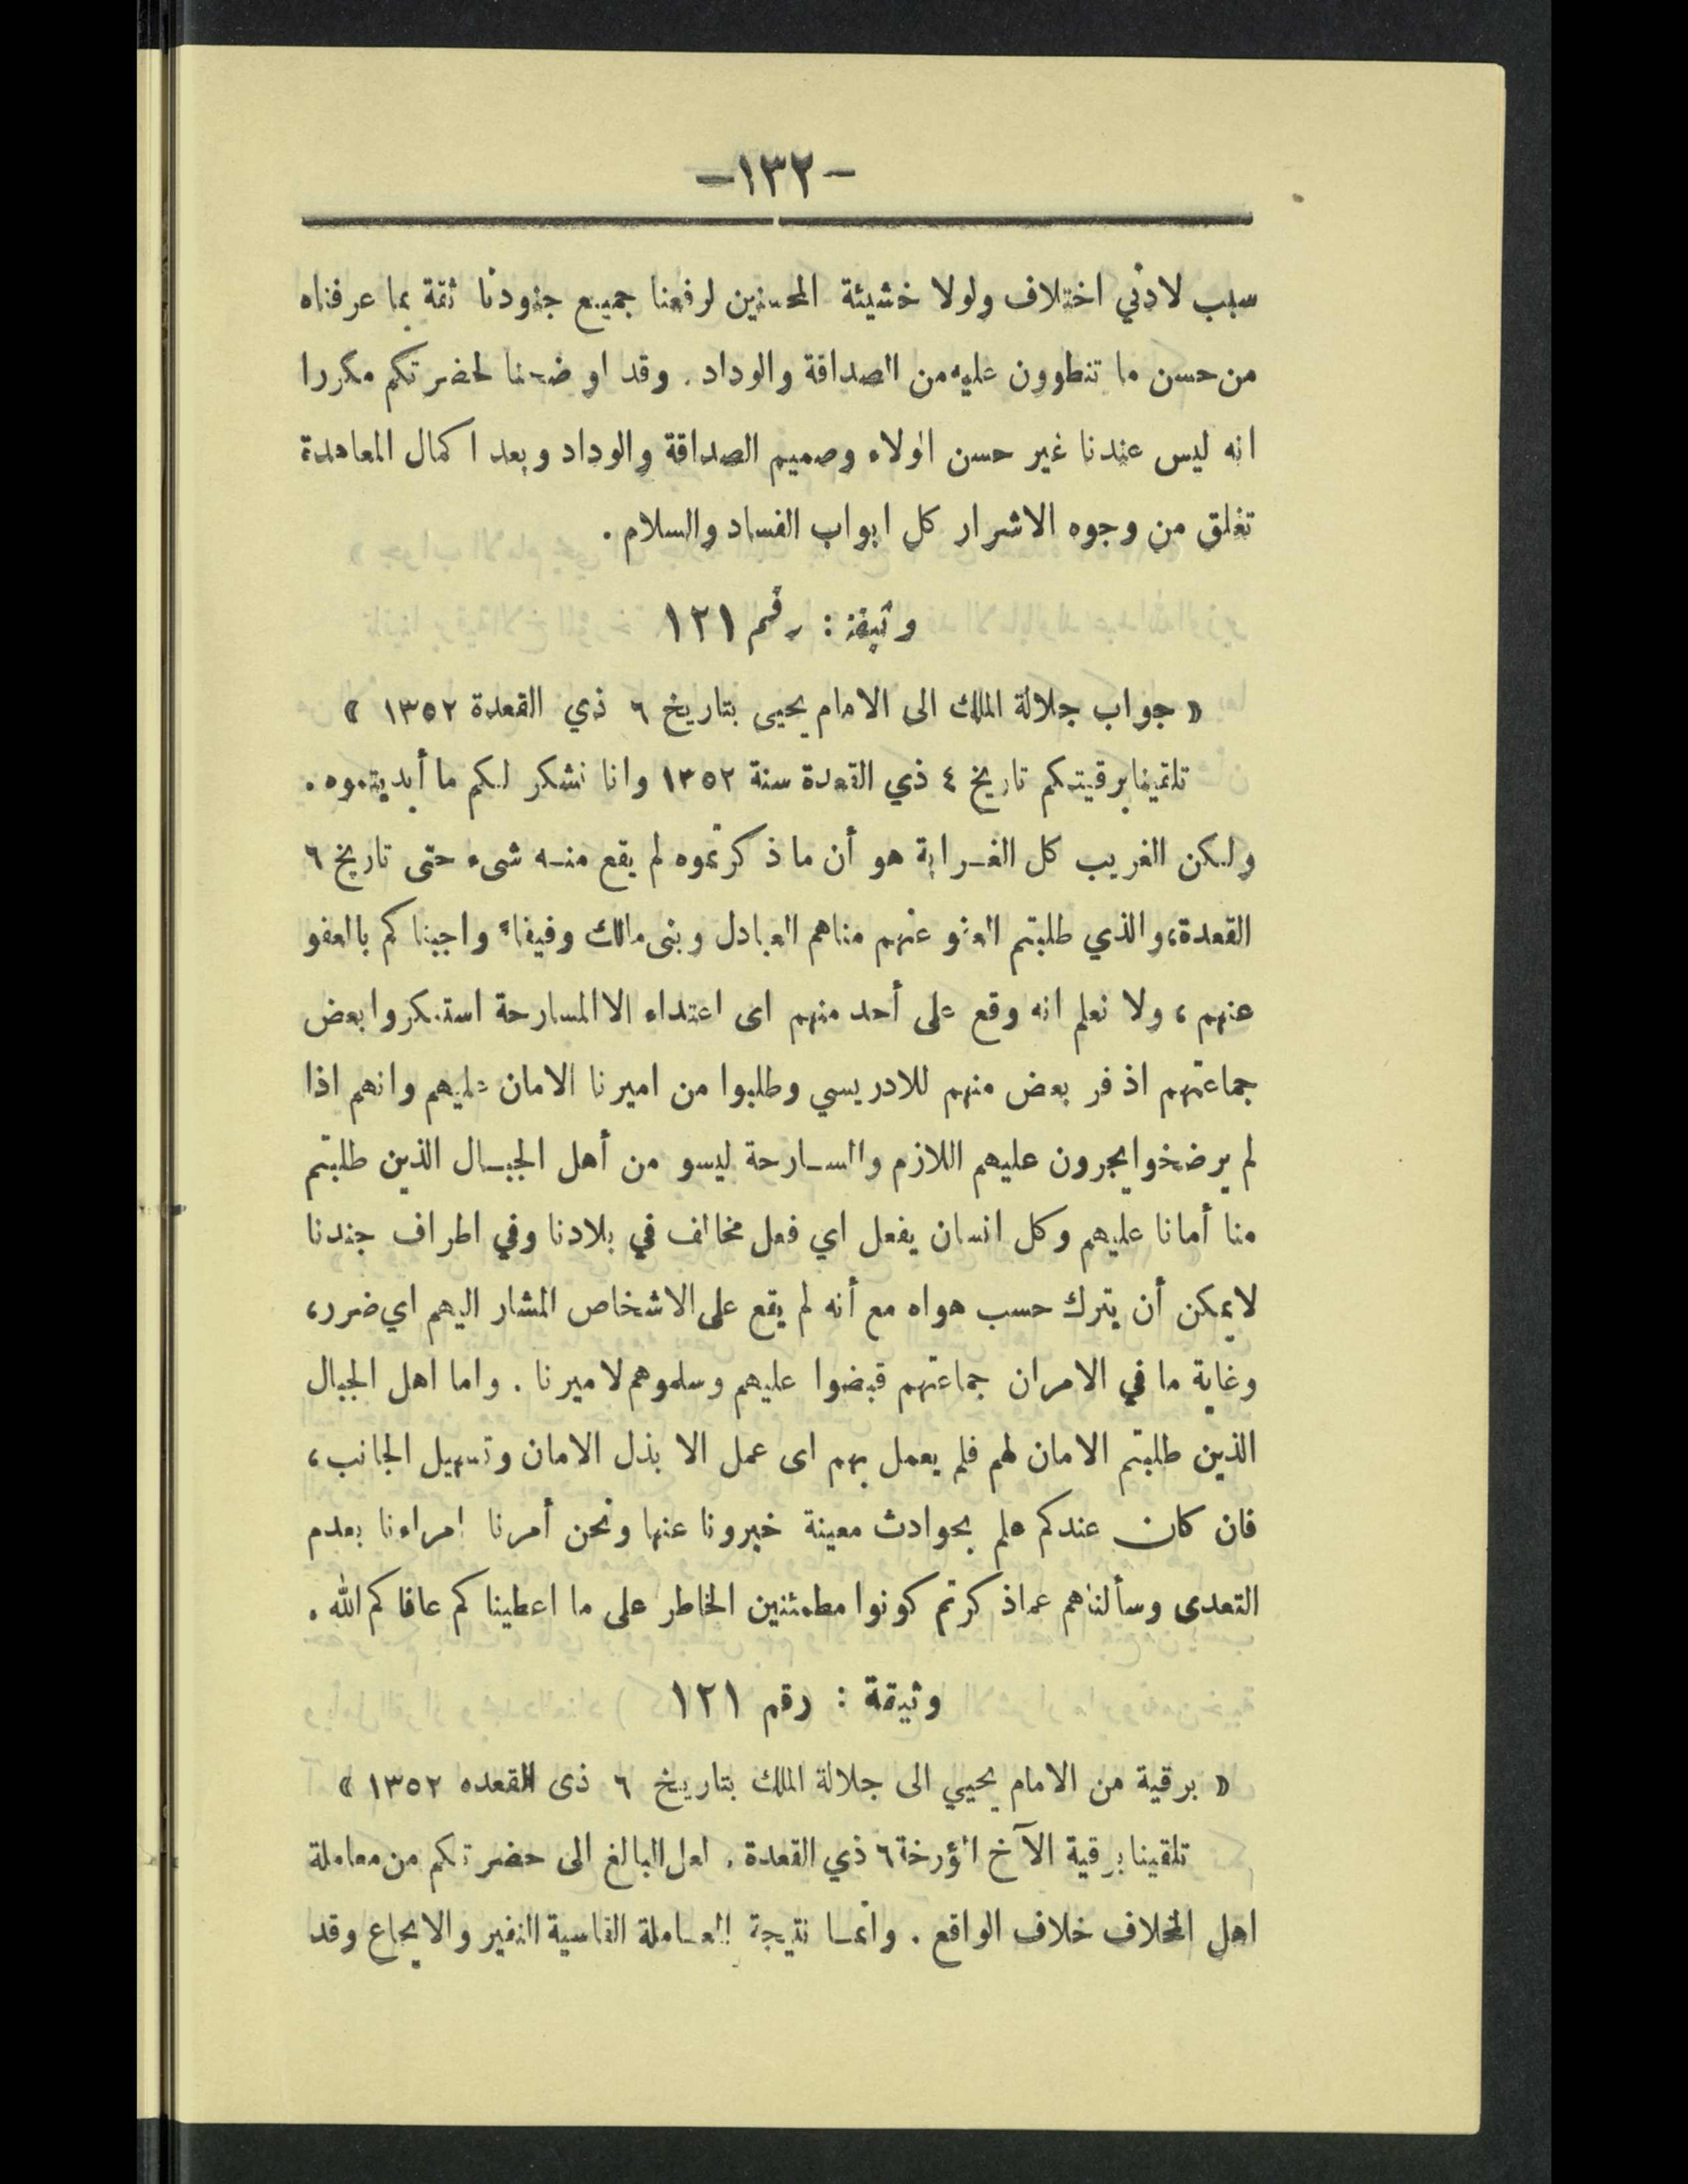 -١٣٢-
سبب لادني اختلاف ولولا خشيئة المحسنين لرفعنا جميع جنودنا ثقة بما عرفناه
من حسن ما تنطوون عليه من الصداقة والوداد. وقد اوضحنا لحضرتكم مكررا
انه ليس عندنا غير حسن الولاء وصميم الصداقة والوداد وبعد اكمال المعاهدة
تغلق من وجوه الاشرار كل ابواب الفساد والسلام.
وثيقة: رقم ١٢١
« جواب جلالة الملك الى الامام يحيى بتاريخ ٦ ذي القعدة ١٣٥٢ »
تلقينا برقيتكم تاريخ ٤ ذي القعدة سنة ١٣٥٢ وانا نشكر لكم ما أبديتموه.
ولكن الغريب كل الغرابة هو أن ما ذكرتموه لم يقع منه شىء حتى تاريخ ٦
القعدة، والذي طلبتم العفو عنهم مناهم العبادل وبنى مالك وفيفاء واجبناكم بالعفو
عنهم، ولا نعلم انه وقع على أحد منهم اى اعتداء الا المسارحة استنكروا بعض
جماعتهم اذ فر بعض منهم للادريسي وطلبوا من اميرنا الامان عليهم وانهم اذا
لم يرضخوا يجرون عليهم اللازم والمسارحة ليسو من أهل الجبال الذين طلبتم
منا أمانا عليهم وكل انسان يفعل اي فعل مخالف في بلادنا وفي اطراف جندنا
لا يمكن أن يترك حسب هواه مع أنه لم يقع على الاشخاص المشار اليهم اي ضرر،
وغاية ما في الامر ان جماعتهم قبضوا عليهم وسلموهم لاميرنا. واما اهل الجبال
الذين طلبتم الامان لهم فلم يعمل بهم اى عمل الا بذل الامان وتسهيل الجانب،
فان كان عندكم علم بحوادث معينة خبرونا عنها ونحن أمرنا امراءنا بعدم
التعدى وسألناهم عماذكرتم كونوا مطمئنين الخاطر على ما اعطيناكم عافاكم الله.
وثيقة: رقم ١٢١
« برقية من الامام يحيي الى جلالة الملك بتاريخ ٦ ذى القعده ١٣٥٢ »
تلقينا برقية الآخ المؤرخة ٦ ذي القعدة. لعل البالغ الى حضرتكم من معاملة
اهل المخلاف خلاف الواقع. وانما نتيجة المعاملة القاسية النفير والايجاع وقد